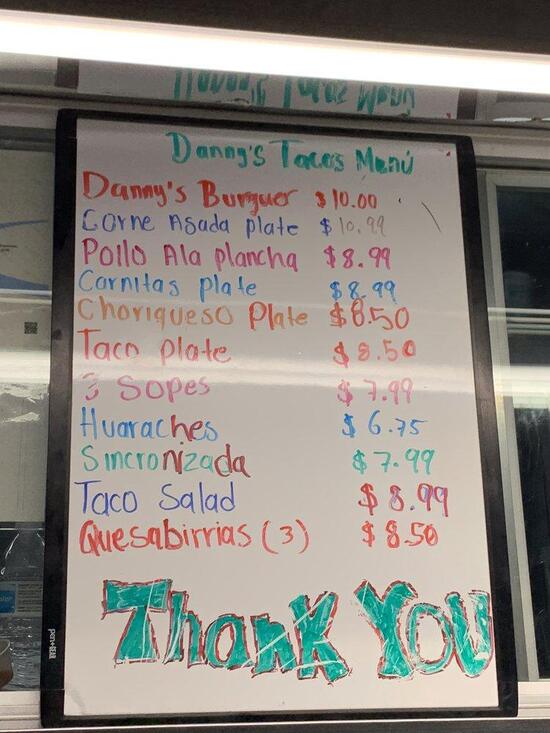 Danny's Tacos Menú
Danny's Burguer $10.00
Corne Asada plate $10.99
Pollo Ala plancha $8.99
Carnitas plate $8.99
Choriqueso Plate $8.50
Taco plate $8.50
3 Sopes $7.99
Huaraches $6.75
Sincronizada $7.99
Taco Salad $8.99
Quesabirrias (3) $8.50
Thank You